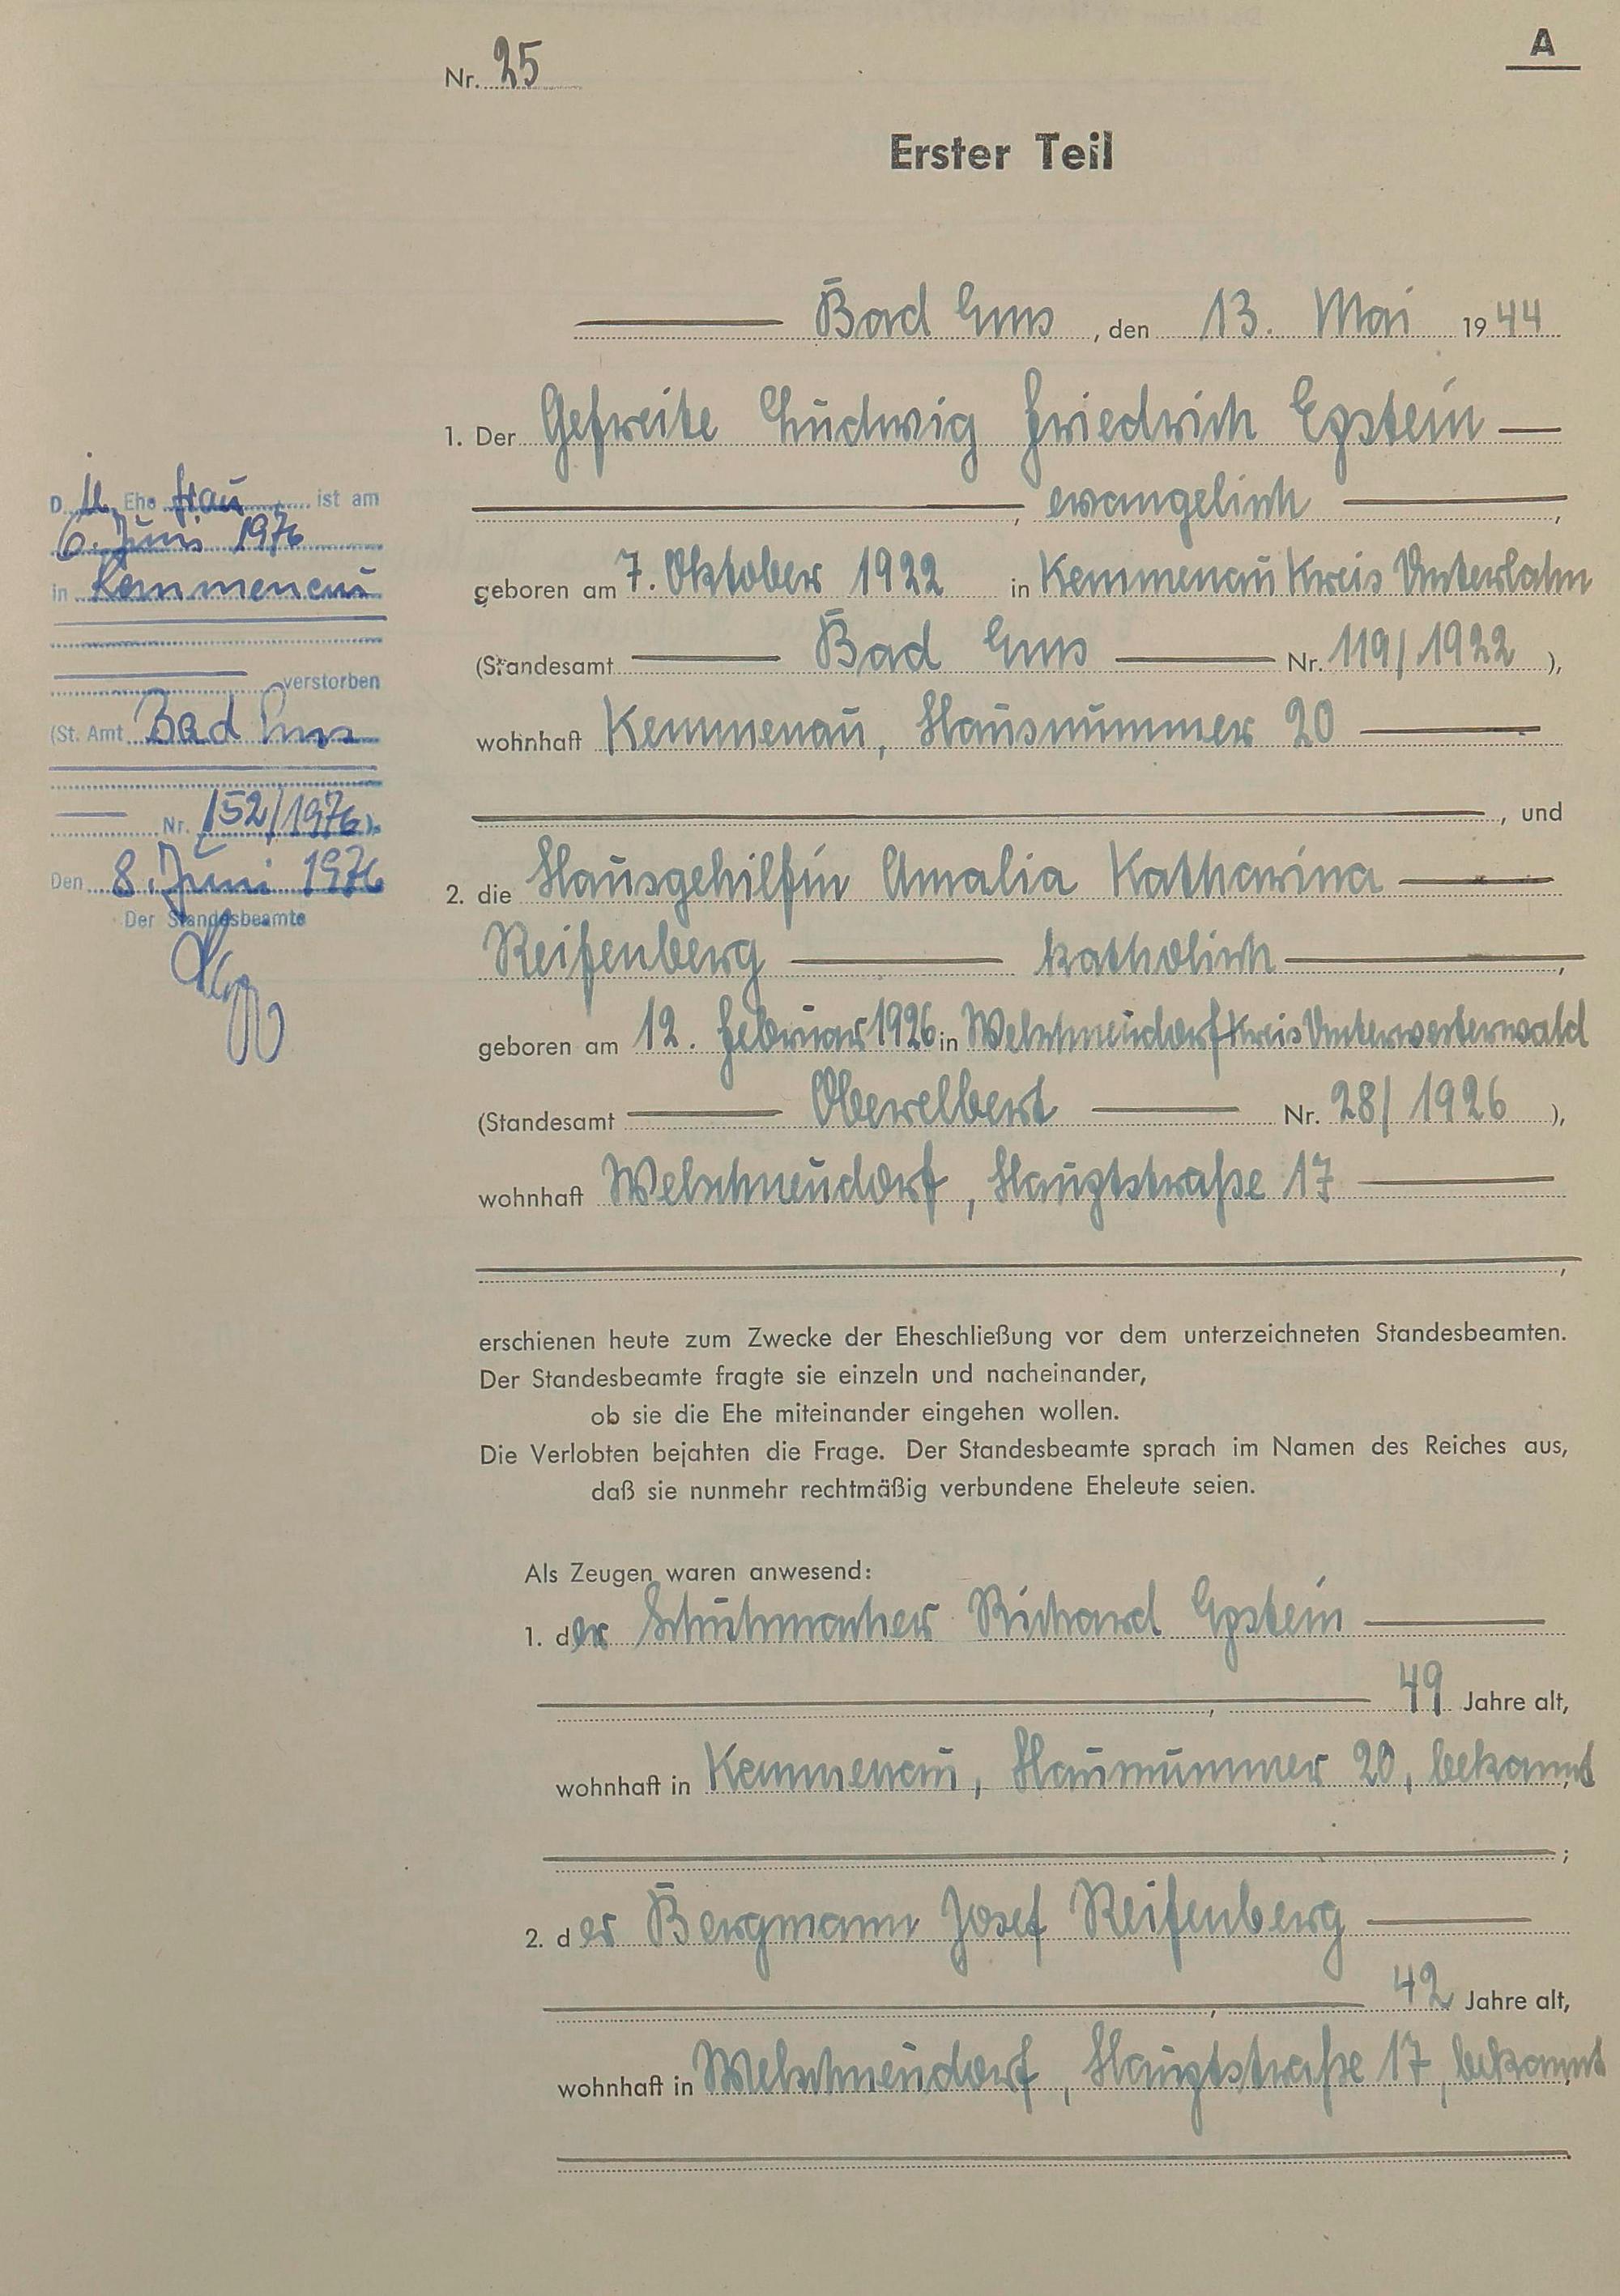 A
Nr. 25
Erster Teil
Bad Ems, den 13. Mai 1944
1. Der Gefreite Ludwig Friedrich Epstein
, evangelisch ,
geboren am 7. Oktober 1922 in Kemmenau Kreis Unterlahn
(Standesamt Bad Ems Nr. 119/1922 ),
wohnhaft Kemmenau, Hausnummer 20
, und
2. die Hausgehilfin Amalia Katharina
Reifenberg katholisch ,
geboren am 12. Februar 1926 in Welschneudorf Kreis Unterwesterwald
(Standesamt Oberelbert Nr. 28/1926 ),
wohnhaft Welschneudorf, Hauptstraße 17
,
erschienen heute zum Zwecke der Eheschließung vor dem unterzeichneten Standesbeamten.
Der Standesbeamte fragte sie einzeln und nacheinander,
ob sie die Ehe miteinander eingehen wollen.
Die Verlobten bejahten die Frage. Der Standesbeamte sprach im Namen des Reiches aus,
daß sie nunmehr rechtmäßig verbundene Eheleute seien.
Als Zeugen waren anwesend:
1. der Schuhmacher Richard Epstein
, 49 Jahre alt,
wohnhaft in Kemmenau, Hausnummer 20, bekannt
;
2. der Bergmann Josef Reifenberg
, 42 Jahre alt,
wohnhaft in Welschneudorf, Hauptstraße 17, bekannt
Die Ehefrau ist am
6. Juni 1976
in Kemmenau
verstorben
(St. Amt Bad Ems
Nr. 152/1976).
Den 8. Juni 1976
Der Standesbeamte